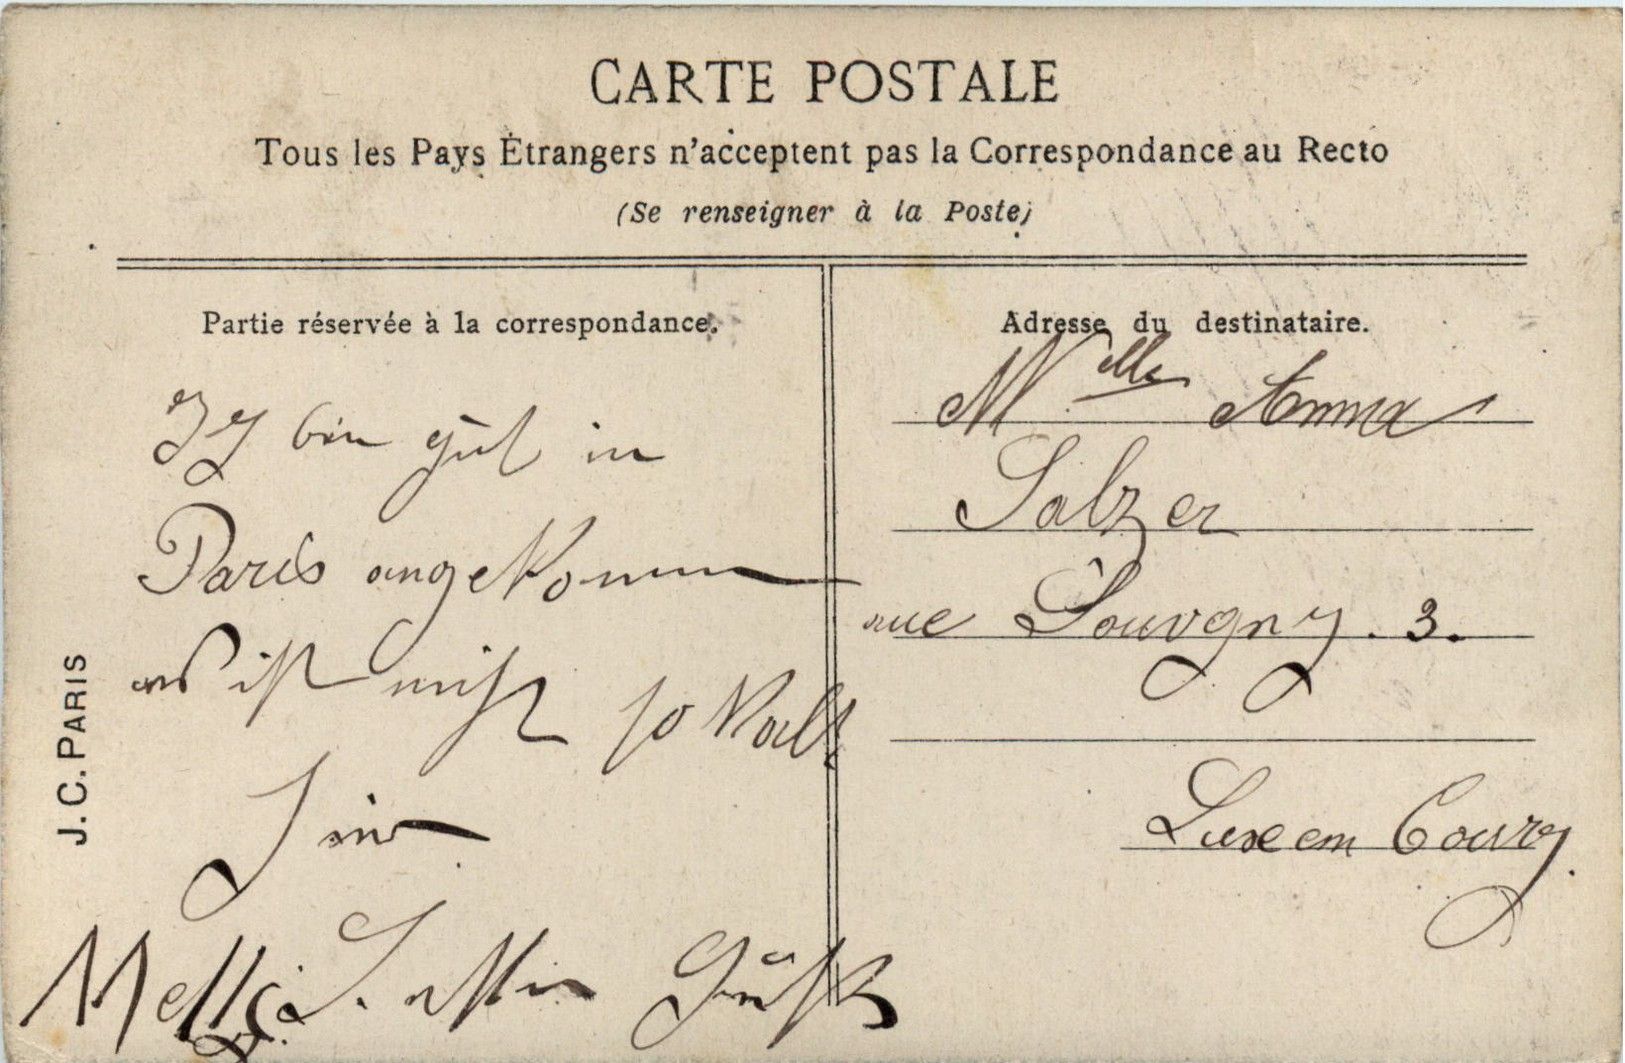 CARTE POSTALE
Tous les Pays Étrangers n'acceptent pas la Correspondance au Recto
(Se renseigner à la Poste)
Partie réservée à la correspondance.
Ich bin gut in
Paris angekommen
es ist nicht so kalt
hier
Grüße
J. C. PARIS
Adresse du destinataire.
Melle Anna
Salzer
rue Louvigny. 3.
Luxembourg.